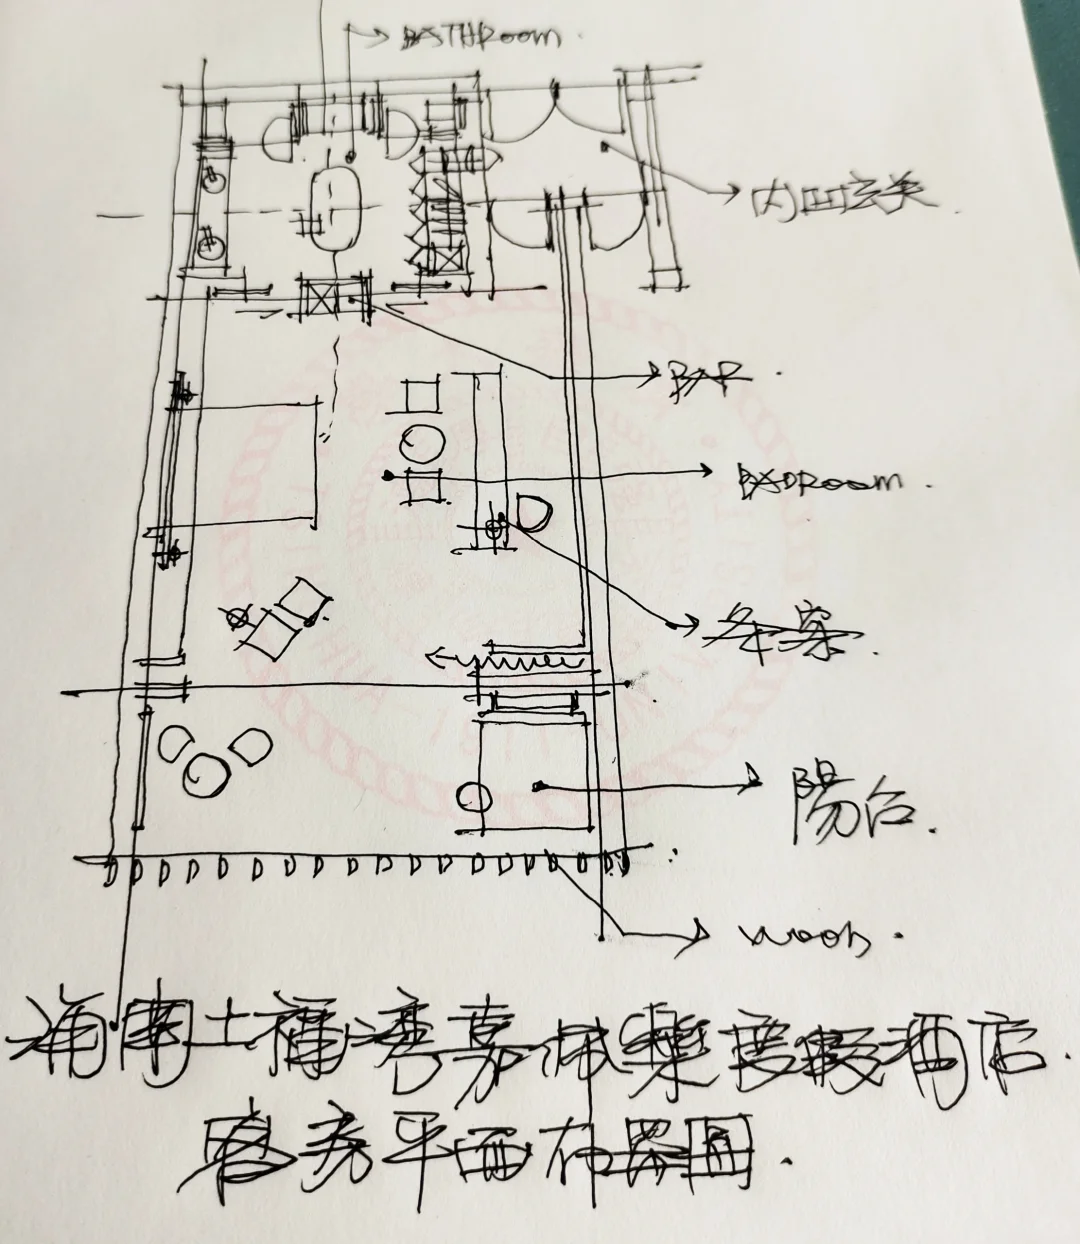 BATHROOM.
内凹玄关.
BAR.
BADROOM.
条案.
陽台.
WOOD.
海南土福湾嘉佩樂度假酒店.
客房平面布置图.